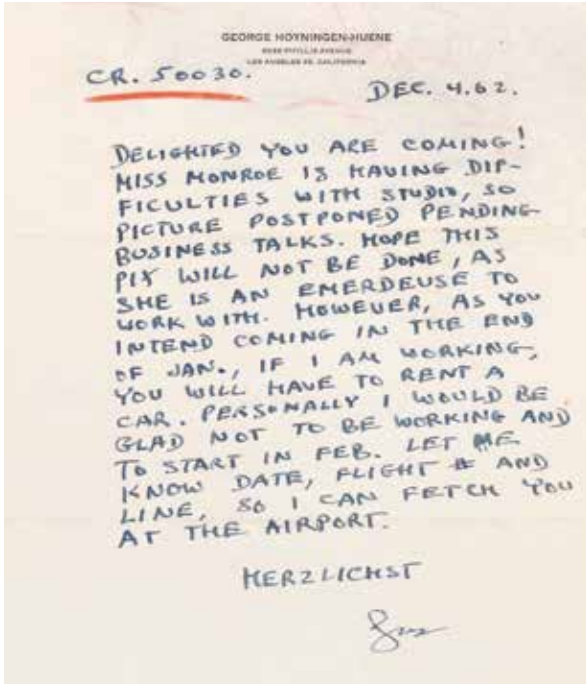 GEORGE HOYNINGEN-HUENE
PHYLLIS AVENUE
LOS ANGELES CALIFORNIA
CR. 50030.
DEC. 4.62.
DELIGHTED YOU ARE COMING!
MISS MONROE IS HAVING DIF-
FICULTIES WITH STUDIO, SO
PICTURE POSTPONED PENDING
BUSINESS TALKS. HOPE THIS
PIX WILL NOT BE DONE, AS
SHE IS AN EMERDEUSE TO
WORK WITH. HOWEVER, AS YOU
INTEND COMING IN THE END
OF JAN., IF I AM WORKING,
YOU WILL HAVE TO RENT A
CAR. PERSONALLY I WOULD BE
GLAD NOT TO BE WORKING AND
TO START IN FEB. LET ME
KNOW DATE, FLIGHT # AND
LINE, SO I CAN FETCH YOU
AT THE AIRPORT.
HERZLICHST